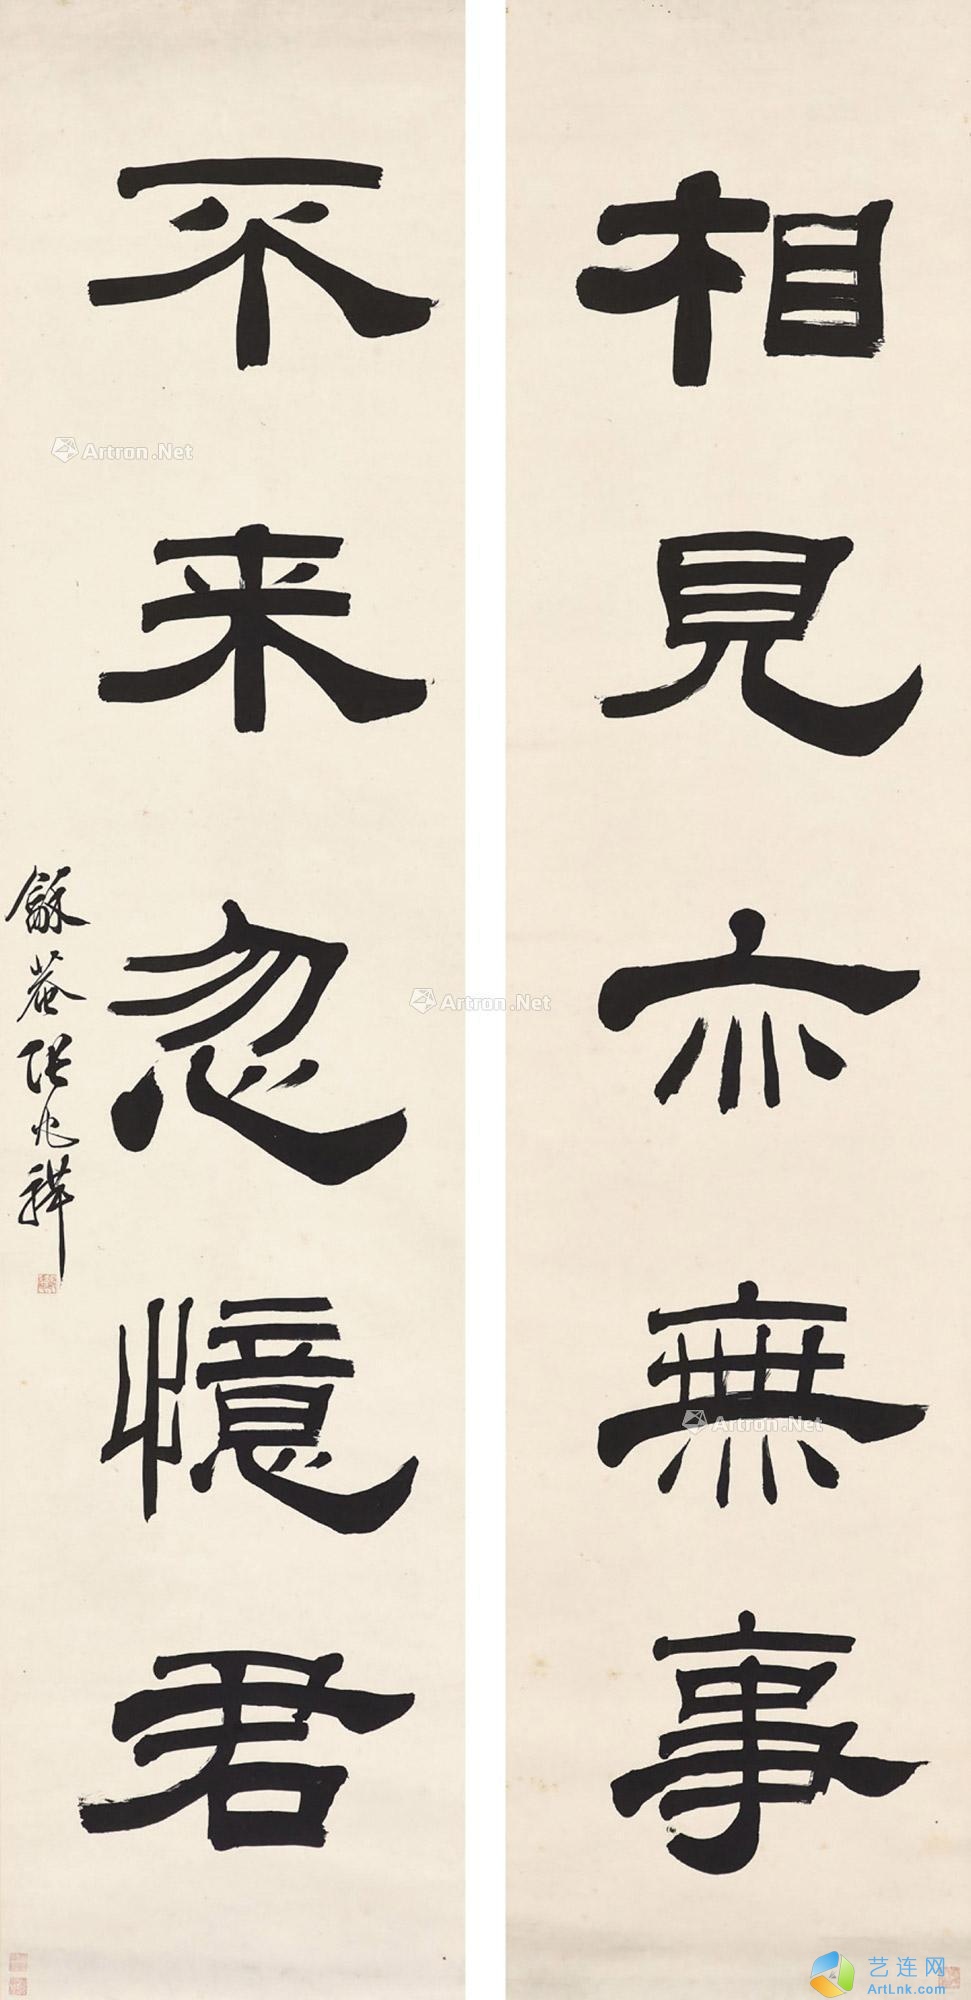 相見亦無事
不来忽憶君
龢菴張兆祥
Artron.Net
Artron.Net
Artron.Net
艺连网
ArtLnk.com